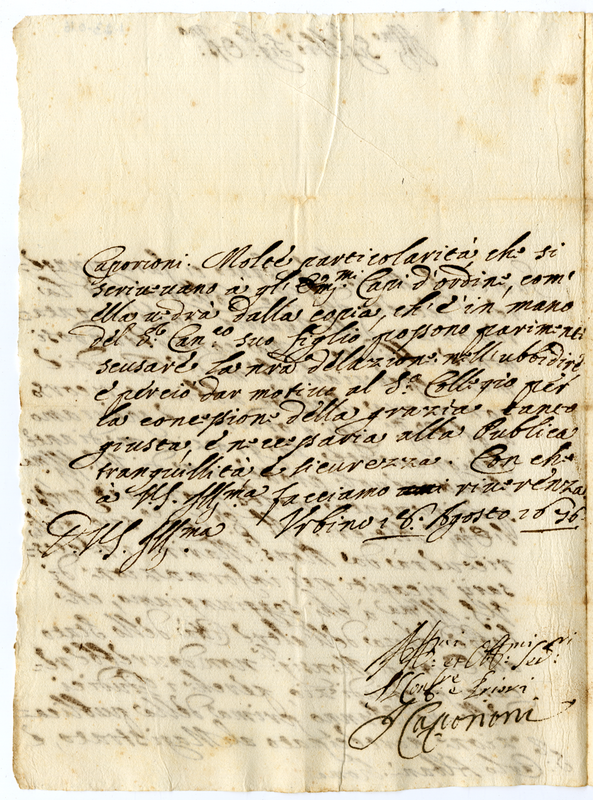 Caporioni. Molte particolarità che si
scriveuano a gl' Em.mi Capi d'ordine, com'
ella uedrà dalla copia, ch' è in mano
del S.r Can.co suo figlio possono pariment.
scusare la nra delazione nell'ubbidire
e perciò dar motiuo al S.o Collegio per
la concessione della grazia tanto
giusta, e necessaria alla Publica
tranquillità e sicurezza. Con che
a V.S. Ill.ma facciamo riuerenza
D.V.S. Ill.ma Vrbino 16. Agosto 1656.
Aff.mi et Obl.mi Ser.ri
Il Conf.re e Priori
Caporioni